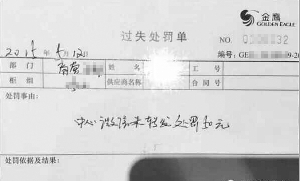 金鹰
GOLDEN EAGLE
过失处罚单
NO.
2015年5月12日
编号:GE
部门 商管 姓名 工号
柜组 供应商名称 合同号
处罚事由:
中心 微信未转发 处罚50元
处罚依据及结果: